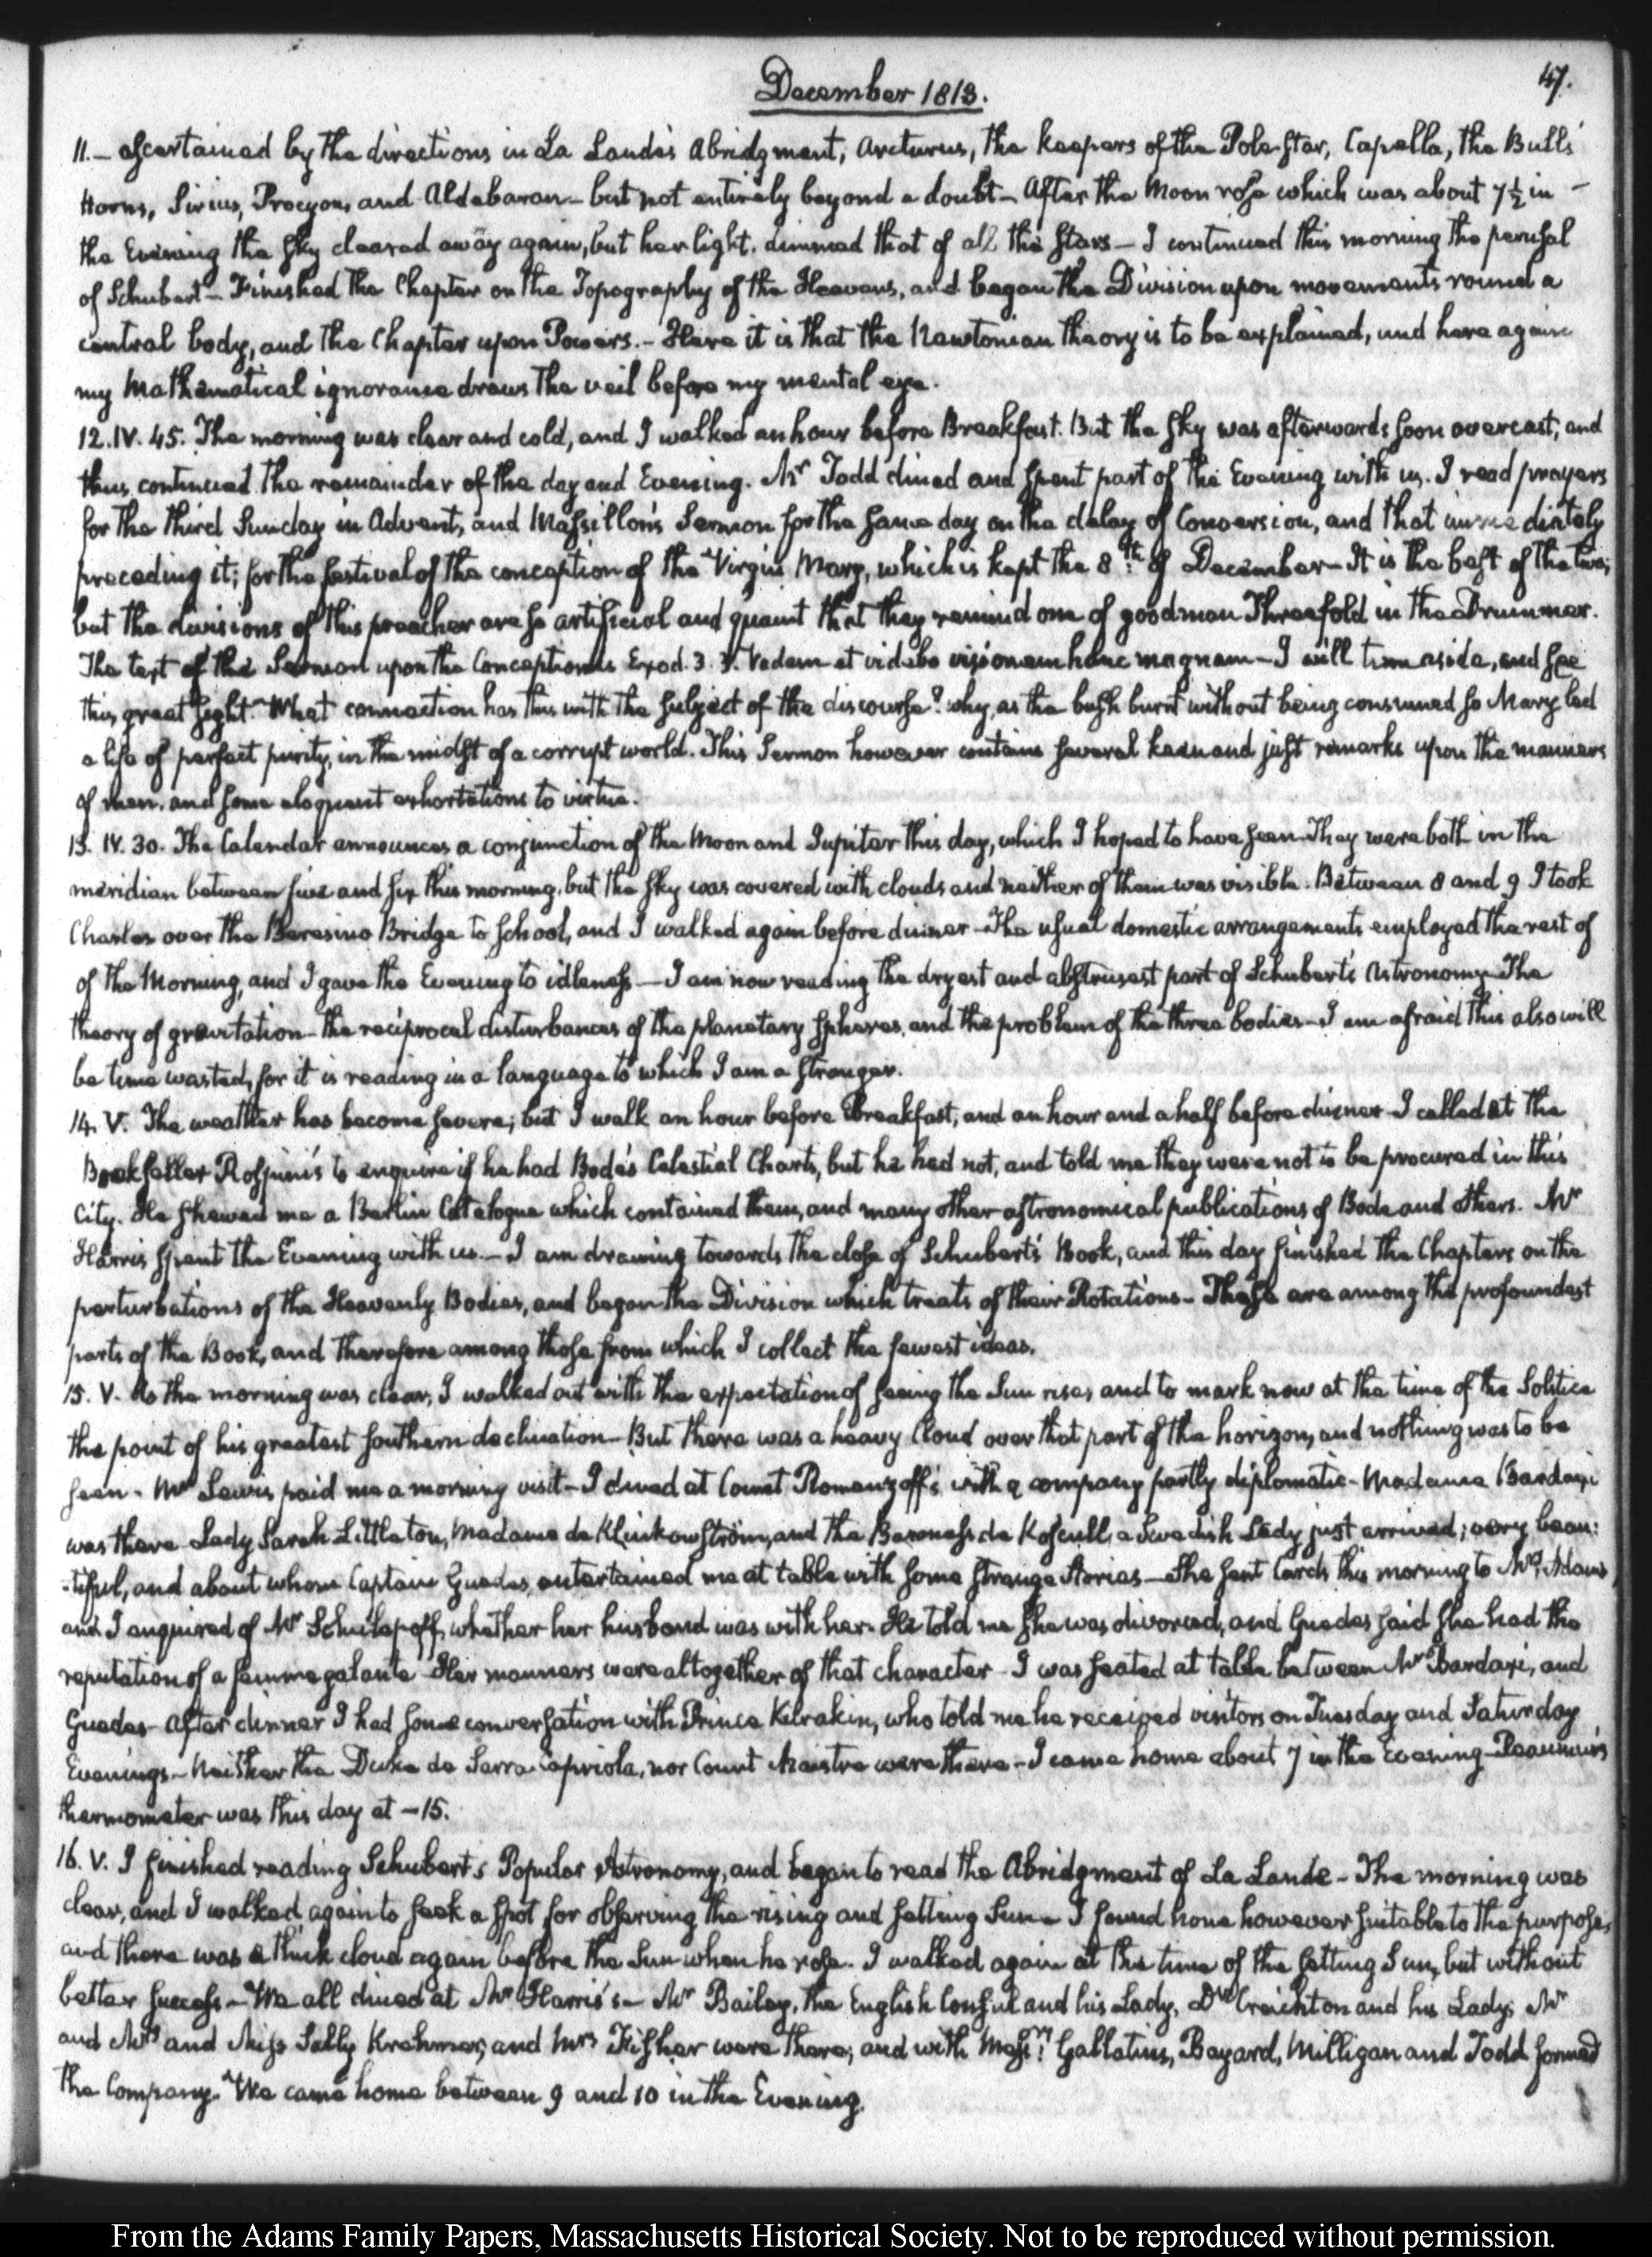 December 1813.
47.
11.— ascertained by the directions in La Lande's Abridgment, Arcturus, the keepers of the Pole-Star, Capella, the Bull's
Horns, Sirius, Procyon, and Aldebaran— but not entirely beyond a doubt— After the Moon rose which was about 7½ in
the Evening the sky cleared away again, but her light, dimmed that of all the stars— I continued this morning the perusal
of Schubert— Finished the Chapter on the Topography of the Heavens, and began the Division upon movements round a
central body, and the Chapter upon Powers.— Here it is that the Newtonian theory is to be explained, and here again
my Mathematical ignorance draws the veil before my mental eye.
12. IV. 45. The morning was clear and cold, and I walked an hour before Breakfast. But the sky was afterwards soon overcast, and
thus continued the remainder of the day and Evening. Mr Todd dined and spent part of the Evening with us. I read prayers
for the third Sunday in Advent, and Massillon's Sermon for the same day on the delay of Conversion, and that immediately
preceding it; for the festival of the conception of the Virgin Mary, which is kept the 8th of December— It is the best of the two;
but the divisions of this preacher are so artificial and quaint that they remind one of goodman Threefold in the Drummer.
The text of the Sermon upon the Conception is Exod. 3. 3. Vadam et videbo visionem hanc magnam— I will turn aside, and see
this great sight. What connection has this with the subject of the discourse? why, as the bush burnt without being consumed so Mary led
a life of perfect purity, in the midst of a corrupt world. This Sermon however contains several keen and just remarks upon the manners
of men, and some eloquent exhortations to virtue.
13. IV. 30. The Calendar announces a conjunction of the Moon and Jupiter this day, which I hoped to have seen. They were both in the
meridian between five and six this morning, but the sky was covered with clouds and neither of them was visible. Between 8 and 9 I took
Charles over the Beresino Bridge to school, and I walked again before dinner— The usual domestic arrangements employed the rest of
of the Morning, and I gave the Evening to idleness— I am now reading the dryest and abstrusest part of Schubert's Astronomy— The
theory of gravitation— the reciprocal disturbances of the planetary spheres, and the problem of the three bodies— I am afraid this also will
be time wasted, for it is reading in a language to which I am a stranger.
14. V. The weather has become severe; but I walk an hour before Breakfast, and an hour and a half before dinner— I called at the
Bookseller Rospini's to enquire if he had Bode's Celestial Charts, but he had not, and told me they were not to be procured in this
City. He shewed me a Berlin Catalogue which contained them, and many other astronomical publications of Bode and others. Mr
Harris spent the Evening with us.— I am drawing towards the close of Schubert's Book, and this day finished the Chapters on the
perturbations of the Heavenly Bodies, and began the Division which treats of their Rotations— These are among the profoundest
parts of the Book, and therefore among those from which I collect the fewest ideas.
15. V. As the morning was clear, I walked out with the expectation of seeing the Sun rise, and to mark now at the time of the Solstice
the point of his greatest southern declination— But there was a heavy Cloud over that part of the horizon, and nothing was to be
seen— Mr Lewis paid me a morning visit— I dined at Count Romanzoff's with a company partly diplomatic— Madame Bardaxi
was there— Lady Sarah Littleton, Madame de Klinkowström, and the Baroness de Koskull a Swedish Lady just arrived; very beau:
:tiful, and about whom Captain Guedes, entertained me at table with some strange stories— She sent Cards this morning to Mrs Adams
and I enquired of Mr whether her husband was with her. He told me she was divorced, and Guedes said she had the
reputation of a femme galante— Her manners were altogether of that character— I was seated at table between Mr Bardaxi, and
Guedes— After dinner I had some conversation with Prince Kurakin, who told me he received visitors on Tuesday and Saturday
Evenings— Neither the Duke de Serra Capriola, nor Count Maistre were there— I came home about 7 in the Evening— Reaumur's
thermometer was this day at —15.
16. V. I finished reading Schubert's Popular Astronomy, and began to read the Abridgment of La Lande— The morning was
clear, and I walked again to seek a spot for observing the rising and setting Sun— I found none however suitable to the purpose,
and there was a thick cloud again before the Sun when he rose. I walked again at the time of the setting Sun, but without
better success— We all dined at Mr Harris's— Mr Bailey, the English Consul and his Lady, Dr Creighton and his Lady, Mr
and Mrs and Miss Sally Krehmer, and Mrs Fisher were there; and with Messrs Gallatin, Bayard, Milligan and Todd formed
the Company. We came home between 9 and 10 in the Evening.
From the Adams Family Papers, Massachusetts Historical Society. Not to be reproduced without permission.